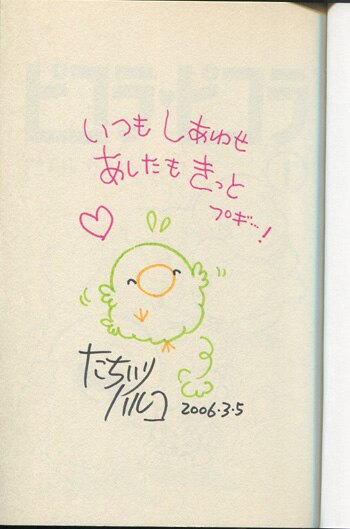 いつも しあわせ
あしたも きっと
プギ…!
たちいり
ハルコ
2006.3.5